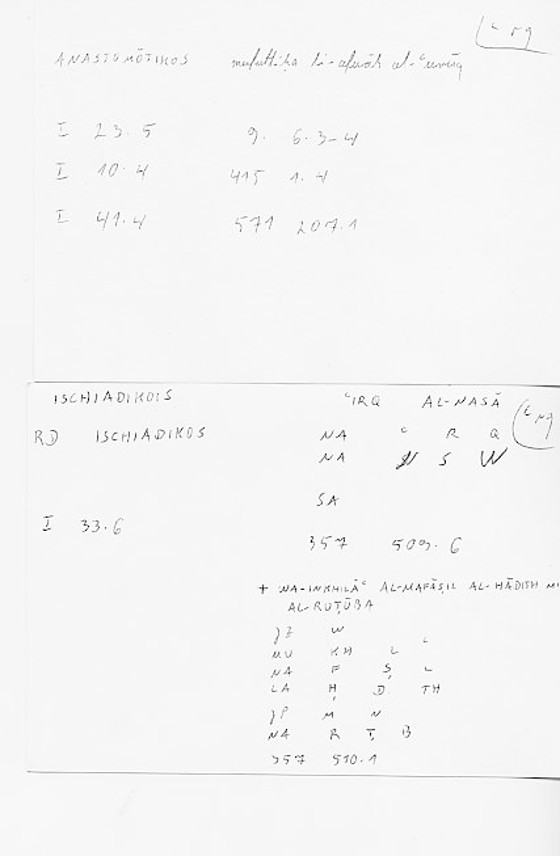 ʿrq
ANASTOMŌTIKOS mufattiḥa li-afwāh al-ʿurūq
I 23.5 9. 6.3-4
I 10.4 415 1.4
I 41.4 571 207.1
ISCHIADIKOIS ʿIRQ AL-NASĀ ʿrq
RD ISCHIADIKOS NA ʿ R Q
NA N S W
SA
I 33.6
357 509.6
+ WA-INKHILĀʿ AL-MAFĀṢIL AL-ḤĀDITH MI
AL-RUṬŪBA
JZ W
MU KH L ʿ
NA F Ṣ L
LA Ḥ D TH
JP M N
NA R Ṭ B
357 510.1